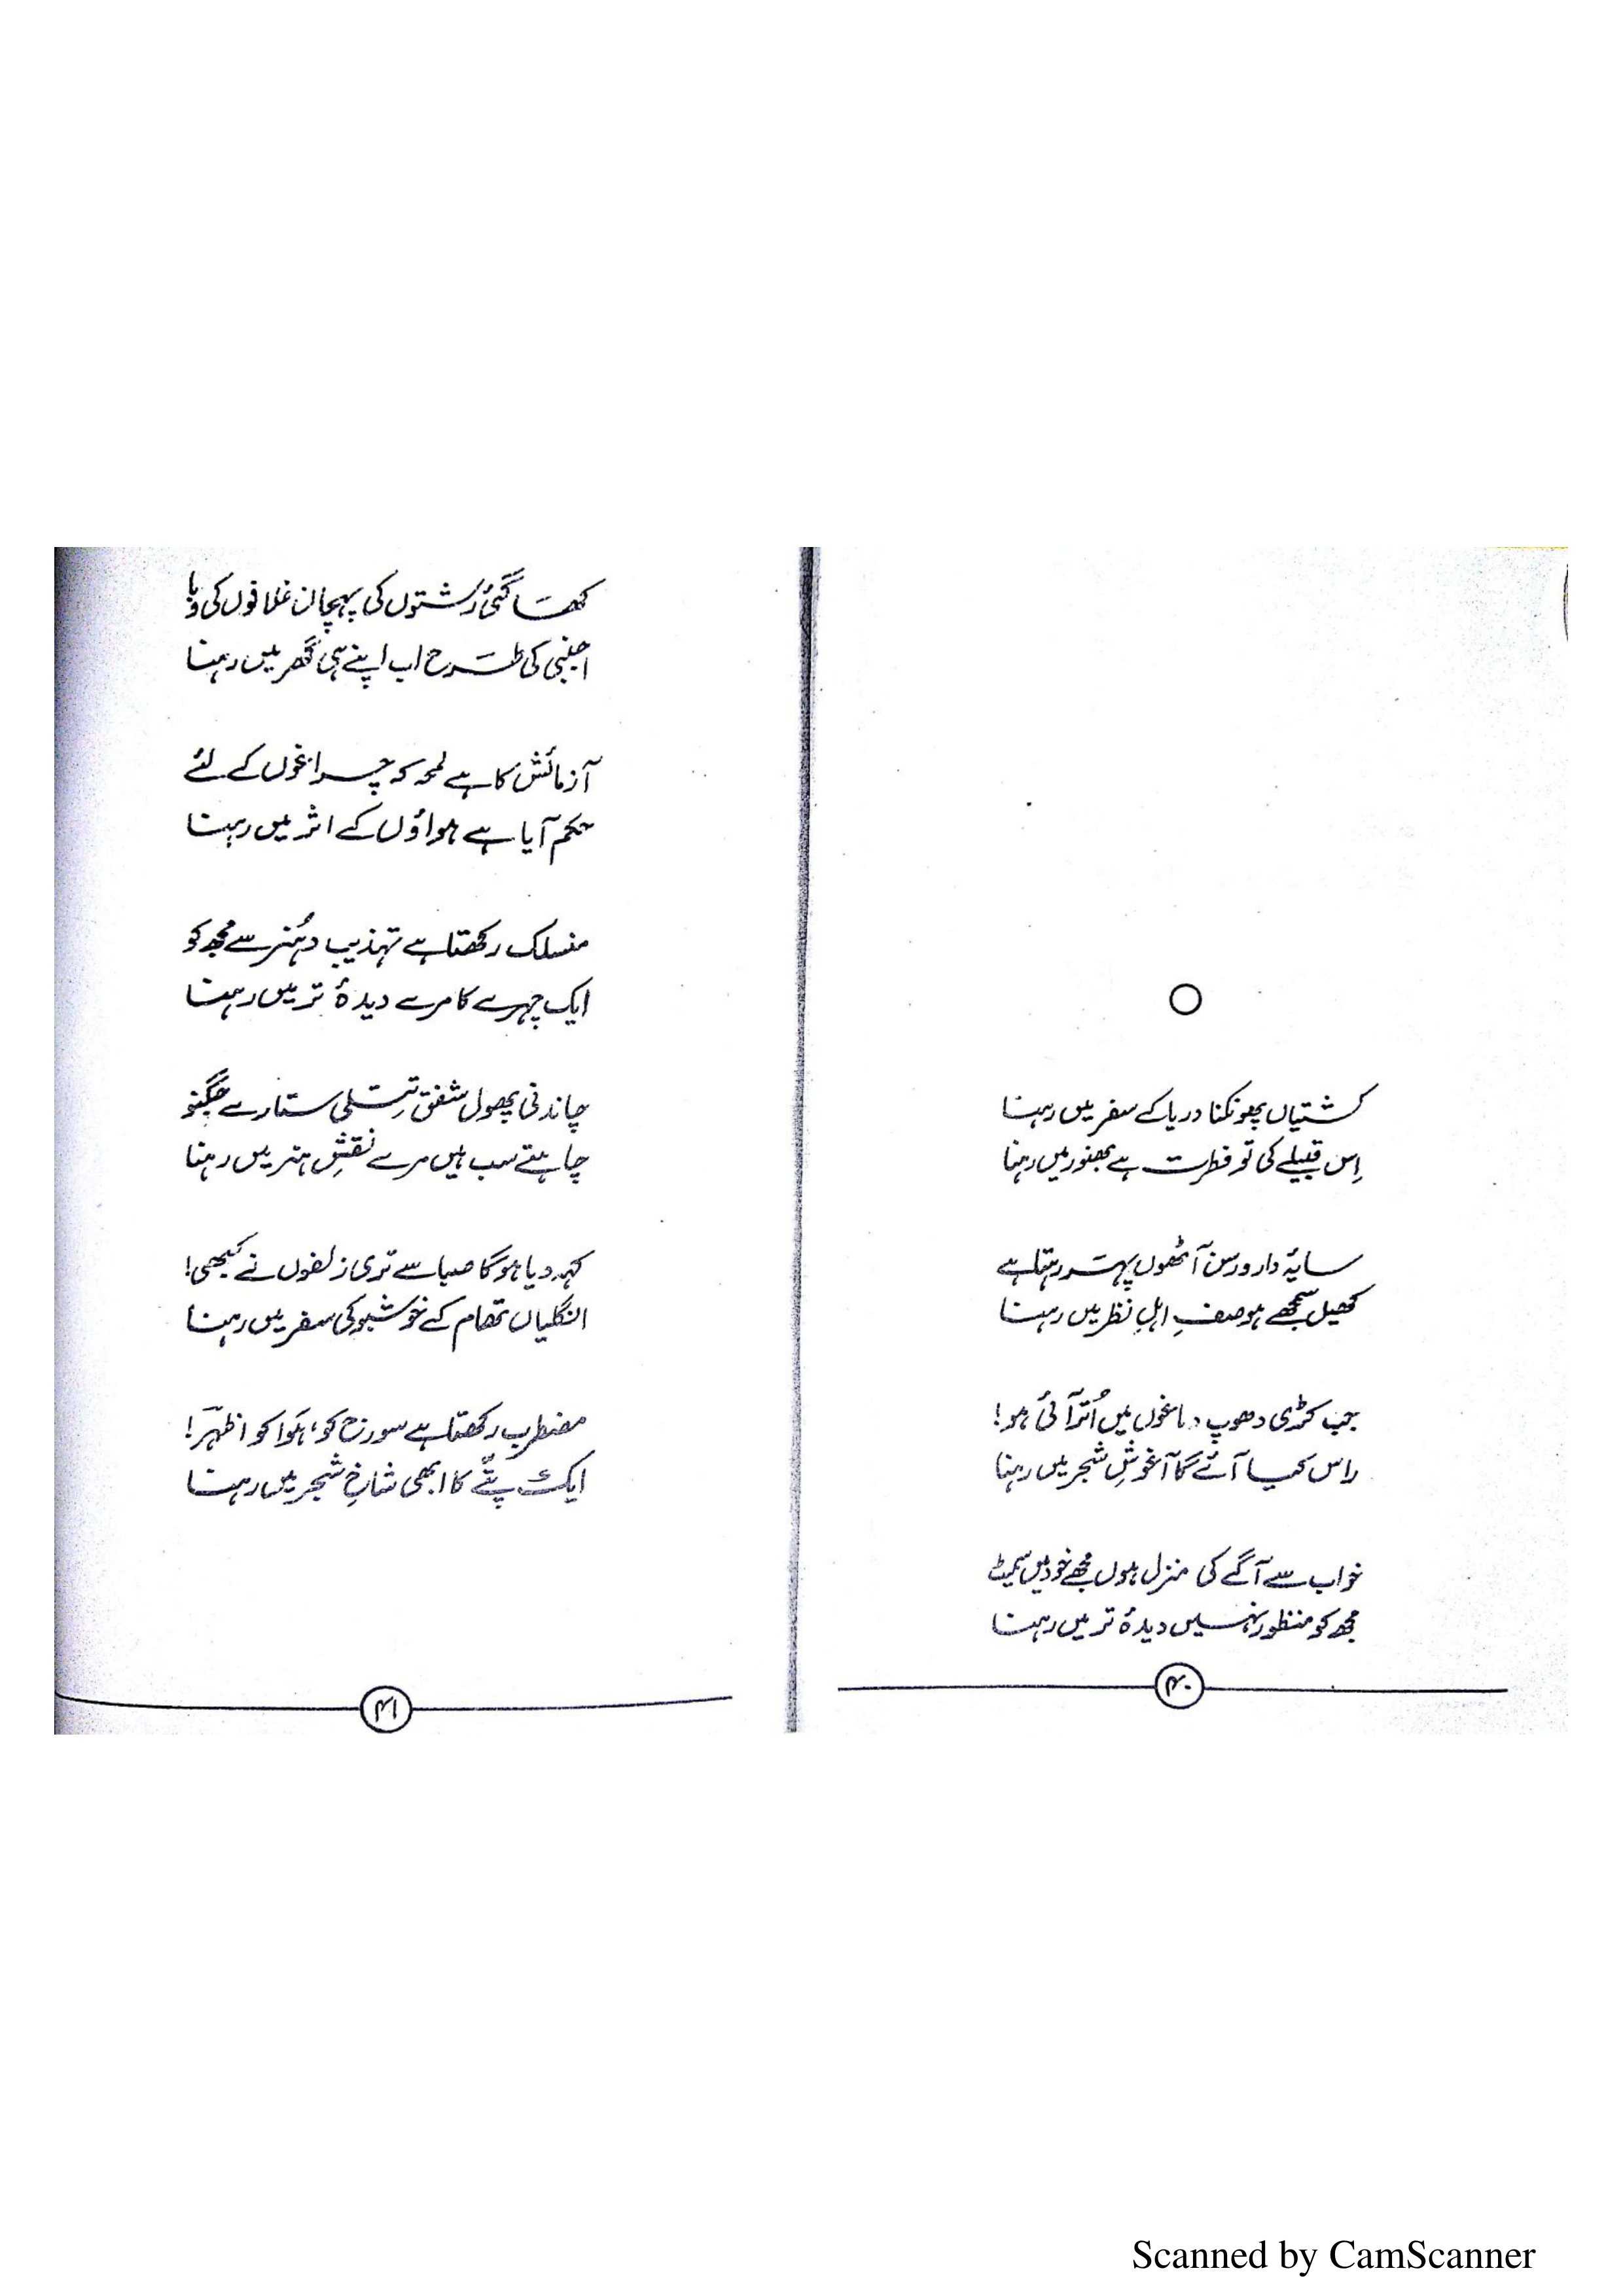 کشتیاں پھونکنا دریا کے سفر میں رہنا
اِس قبیلے کی تو فطرت ہے بھنور میں رہنا
سایۂ دار و رسن آٹھوں پہر رہتا ہے
کھیل سمجھے ہو صفِ اہلِ نظر میں رہنا
جب کڑی دھوپ دماغوں میں اُتر آئی ہو!
راس کیا آئے گا آغوشِ شجر میں رہنا
خواب سے آگے کی منزل ہوں مجھے خود میں سمیٹ
مجھ کو منظور نہیں دیدۂ تر میں رہنا
۴۰
کھا گئی رشتوں کی پہچان غلافوں کی وبا
اجنبی کی طرح اب اپنے ہی گھر میں رہنا
آزمائش کا ہے لمحہ کہ چراغوں کے لئے
حکم آیا ہے ہواؤں کے اثر میں رہنا
منسلک رکھتا ہے تہذیب و ہُنر سے مجھ کو
ایک چہرے کا مرے دیدۂ تر میں رہنا
چاندنی پھول شفق تِتلی ستارے جگنو
چاہتے سب ہیں مرے نقشِ ہنر میں رہنا
کہہ دیا ہو گا صبا سے تری زلفوں نے کبھی!
انگلیاں تھام کے خوشبو کی سفر میں رہنا
مضطرب رکھتا ہے سورج کو، ہَوا کو اظہرؔ!
ایک پتّے کا ابھی شاخِ شجر میں رہنا
۴۱
Scanned by CamScanner